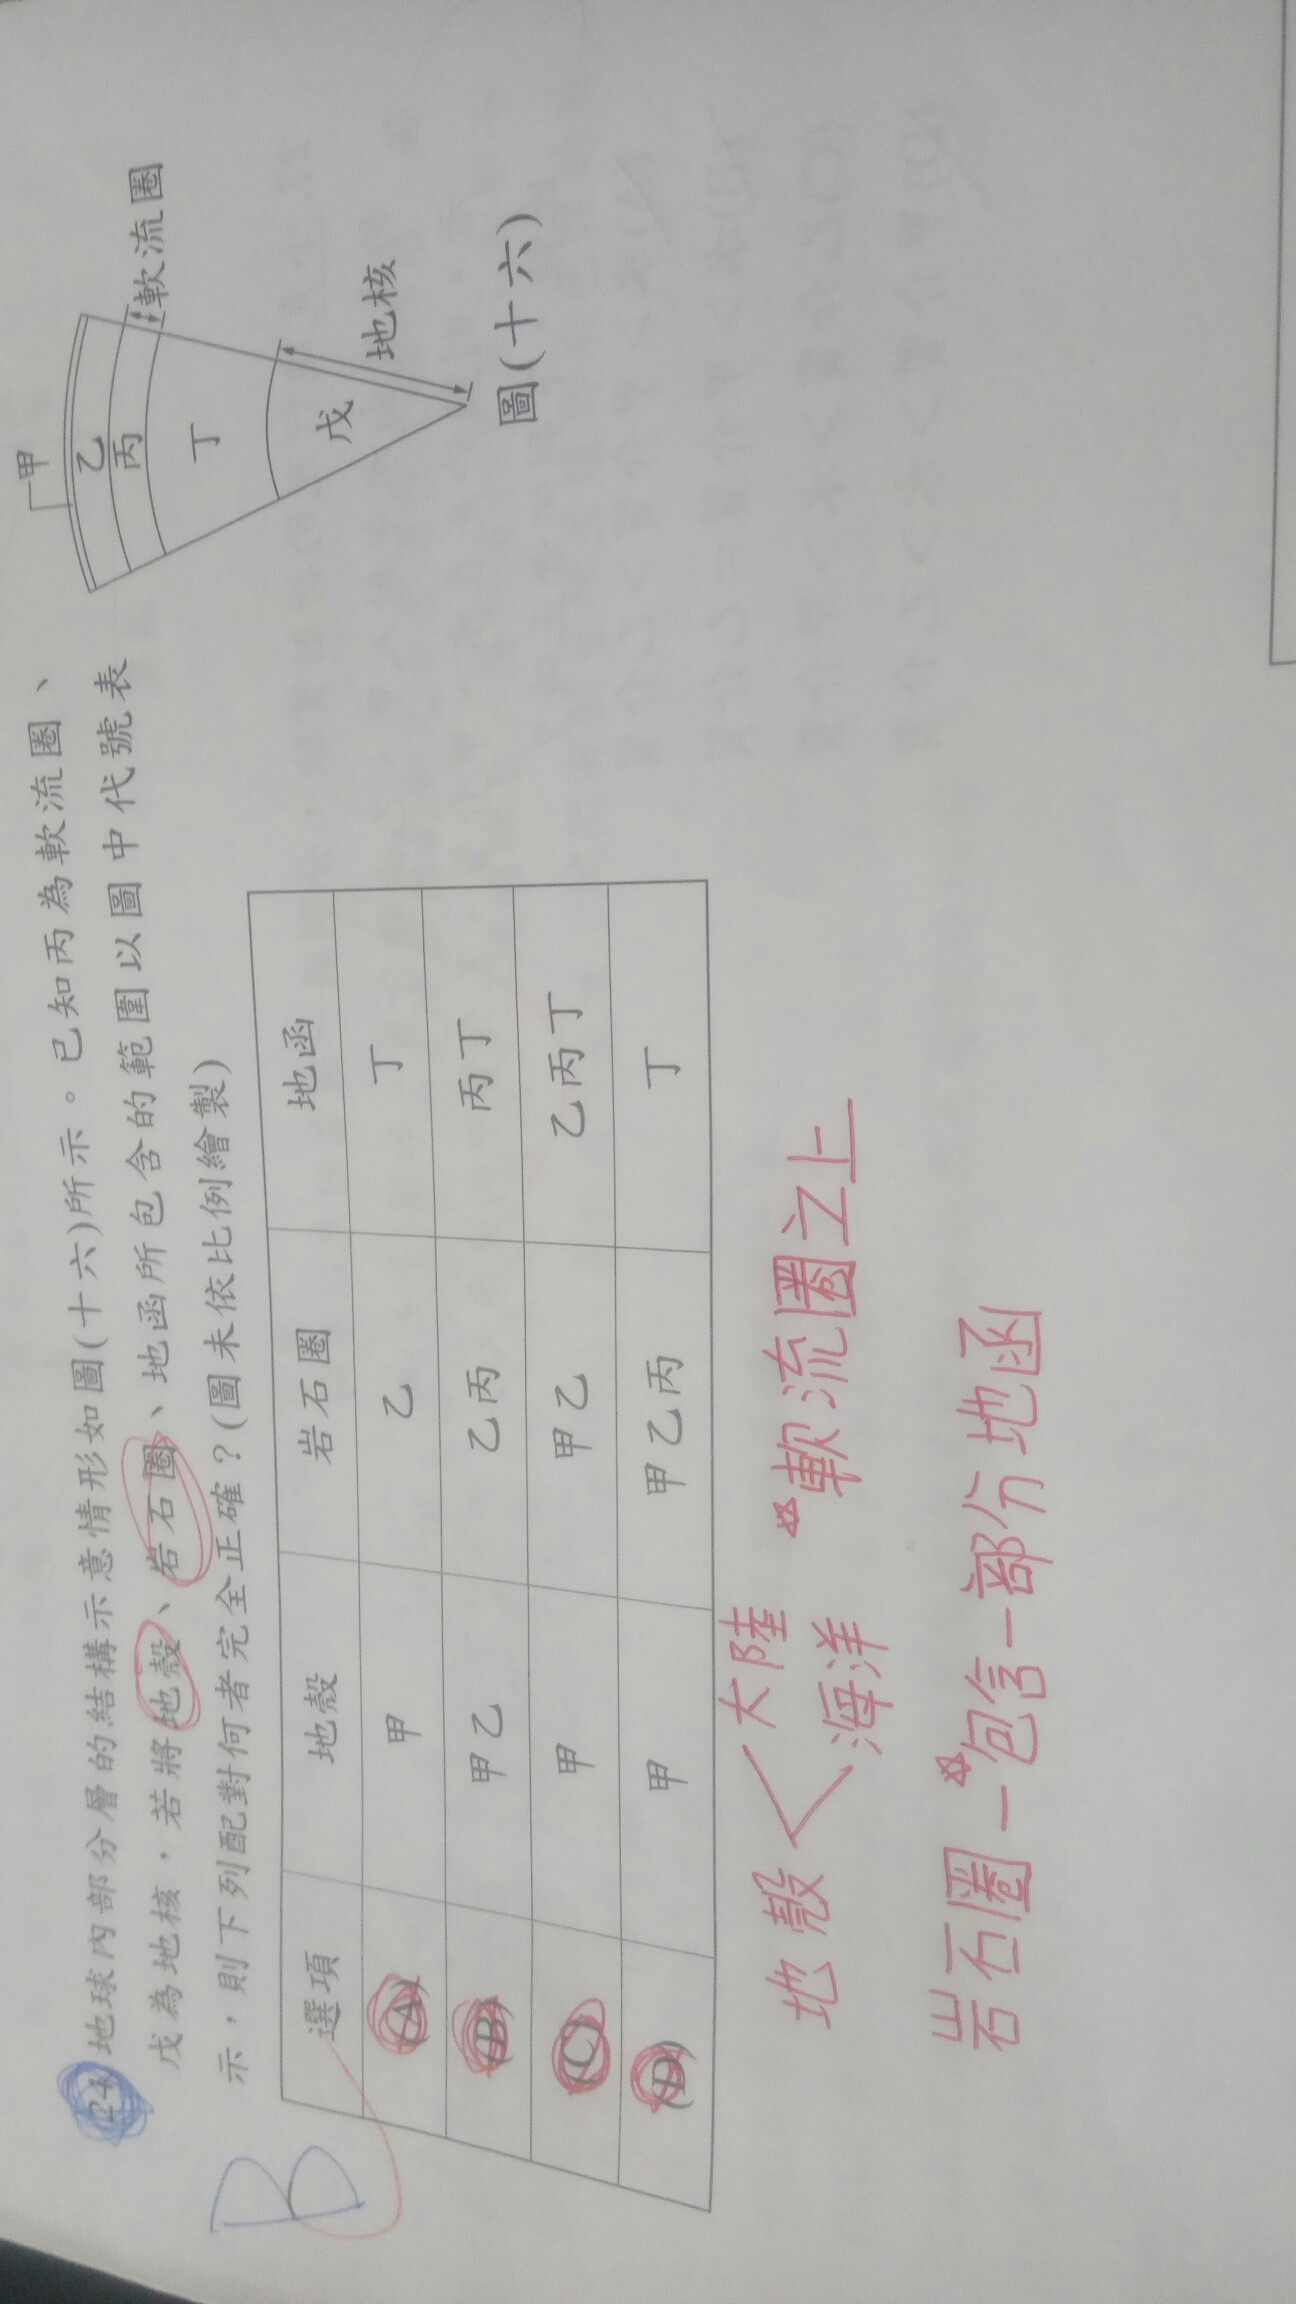 24 地球內部分層的結構示意情形如圖(十六)所示。已知丙為軟流圈、
戊為地核，若將地殼、岩石圈、地函所包含的範圍以圖中代號表
示，則下列配對何者完全正確？(圖未依比例繪製)
B
選項 地殼 岩石圈 地函
(A) 甲 乙 丁
(B) 甲乙 乙丙 丙丁
(C) 甲 甲乙 乙丙丁
(D) 甲 甲乙丙 丁
甲
乙
丙
丁
戊
軟流圈
地核
圖(十六)
地殼 大陸
海洋
軟流圈之上
岩石圈–包含一部分地函